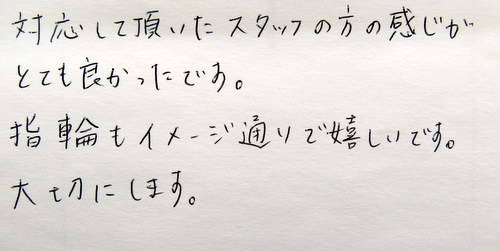 対応して頂いたスタッフの方の感じが
とても良かったです。
指輪もイメージ通りで嬉しいです。
大切にします。